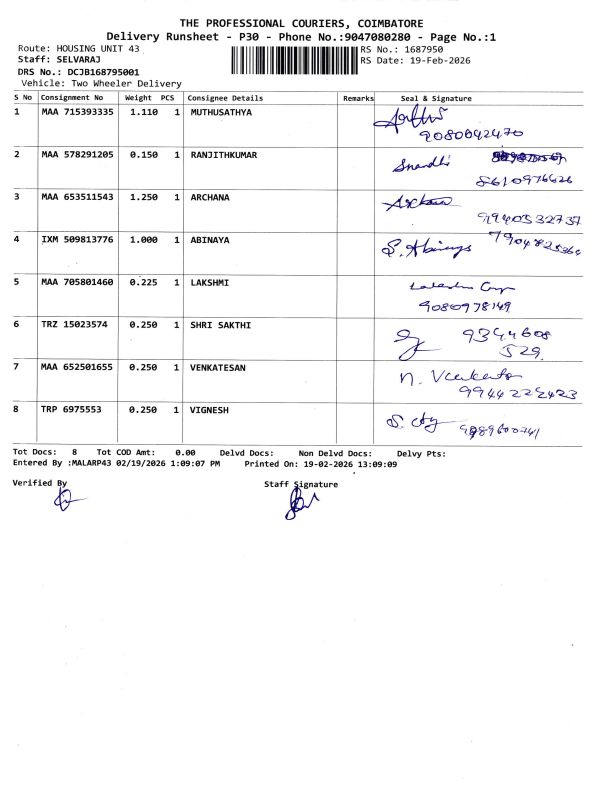 THE PROFESSIONAL COURIERS, COIMBATORE
Delivery Runsheet - P30 - Phone No.:9047080280 - Page No.:1
Route: HOUSING UNIT 43 RS No.: 1687950
Staff: SELVARAJ RS Date: 19-Feb-2026
DRS No.: DCJB168795001
Vehicle: Two Wheeler Delivery
S No Consignment No Weight PCS Consignee Details Remarks Seal & Signature
1 MAA 715393335 1.110 1 MUTHUSATHYA
9080042470
2 MAA 578291205 0.150 1 RANJITHKUMAR
8610976626
3 MAA 653511543 1.250 1 ARCHANA Archana
9940532737
4 IXM 509813776 1.000 1 ABINAYA S. Abinaya 7904825364
5 MAA 705801460 0.225 1 LAKSHMI
9080978149
6 TRZ 15023574 0.250 1 SHRI SAKTHI 9344608
529
7 MAA 652501655 0.250 1 VENKATESAN
9944222423
8 TRP 6975553 0.250 1 VIGNESH
Tot Docs: 8 Tot COD Amt: 0.00 Delvd Docs: Non Delvd Docs: Delvy Pts:
Entered By :MALARP43 02/19/2026 1:09:07 PM Printed On: 19-02-2026 13:09:09
Verified By Staff Signature